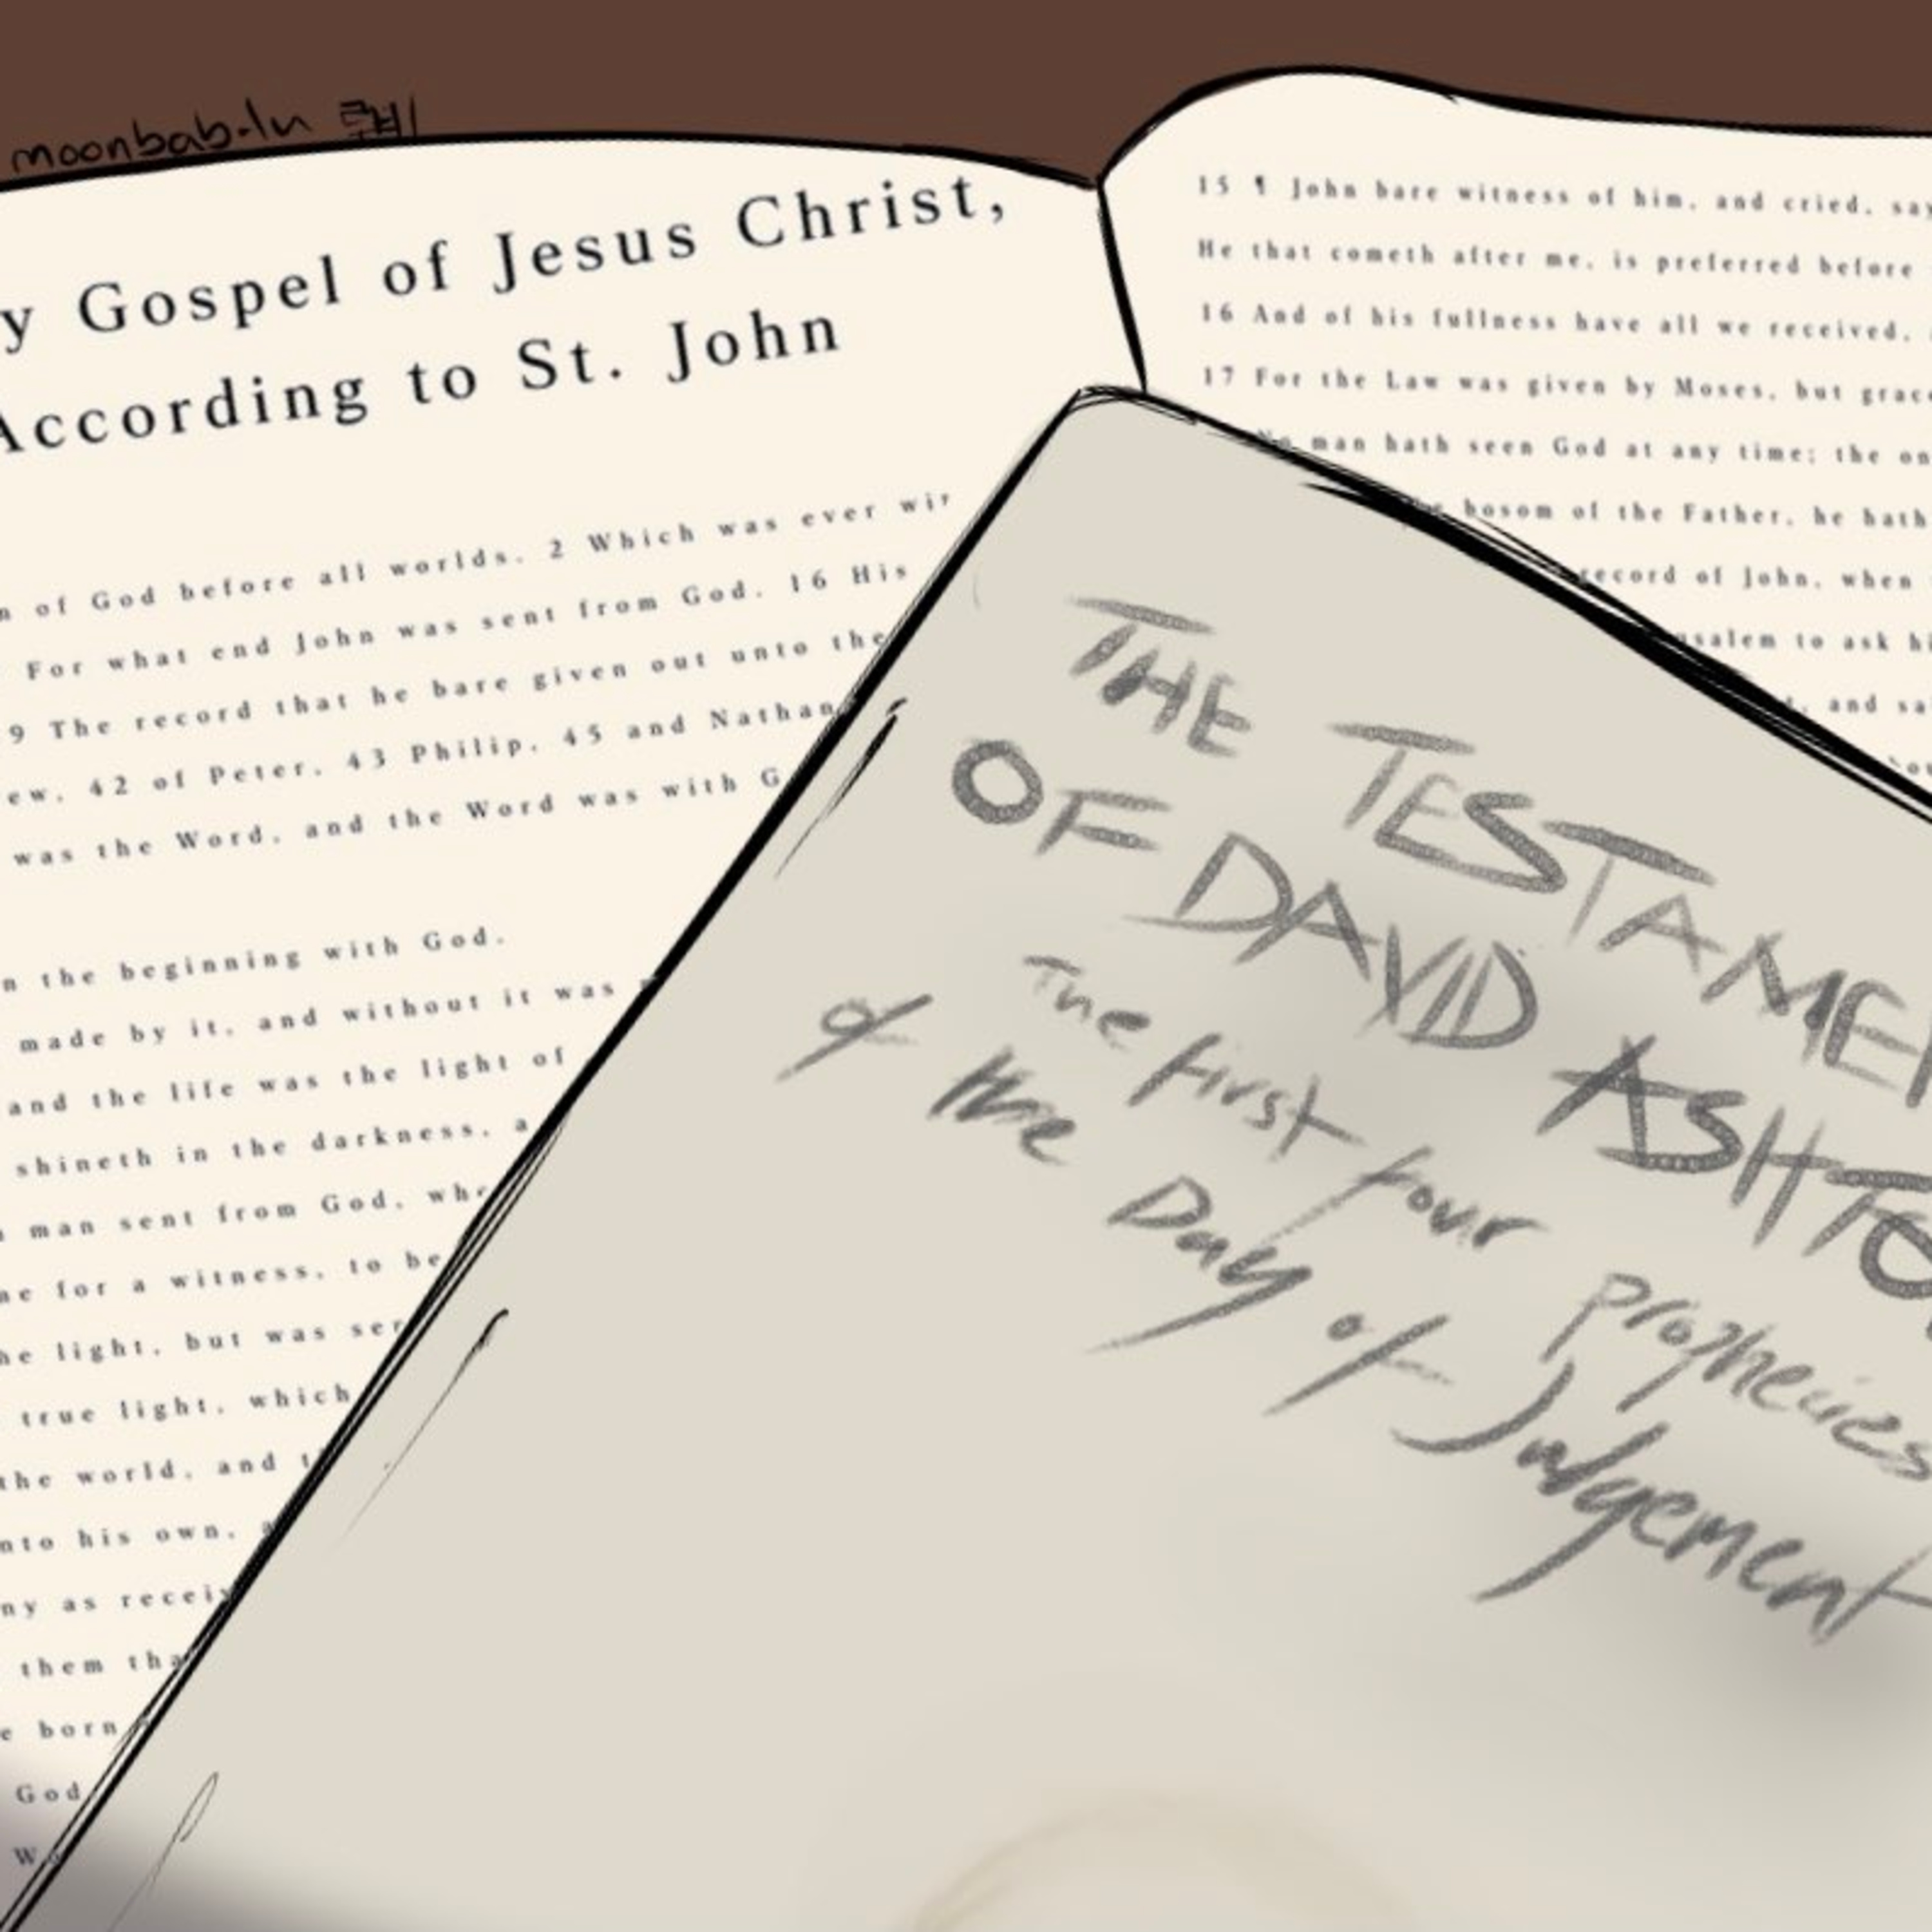 moonbab.ln
y Gospel of Jesus Christ,
According to St. John
n of God before all worlds. 2 Which was ever
For what end John was sent from God. 16 His
9 The record that he bare given out unto the
ew, 42 of Peter, 43 Philip, 45 and Nathan
was the Word, and the Word was with G
n the beginning with God.
made by it, and without it was
and the life was the light of
shineth in the darkness, a
man sent from God, who
me for a witness, to be
he light, but was
true light, which
the world, and
nto his own,
ny as
them tha
e born
God
15 ¶ John bare witness of him, and cried, say
He that cometh after me, is preferred before
16 And of his fullness have all we received,
17 For the Law was given by Moses, but grace
No man hath seen God at any time; the on
bosom of the Father, he hath
record of John, when
usalem to ask hi
, and sa
THE TESTAME
OF DAVID ASHTO
The first four prophecies
of the Day of Judgement